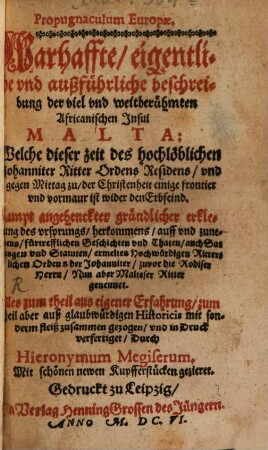 Propugnaculum Europæ,
Warhaffte/eigentli-
e vnd außführliche beschrei-
bung der viel vnd weltberühmten
Africanischen Insul
MALTA:
Welche dieser zeit des hochlöblichen
Johanniter Ritter Ordens Residens/vnd
gegen Mittag zu/der Christenheit einige frontier
vnd vormaur ist wider den Erbfeind.
Sampt angehenckter gründlicher erkle-
ung des vrsprungs/herkommens/auff vnd zune-
ens/fürtrefflichen Geschichten vnd Thaten/auch Sat
ungen vnd Statuten/ermeltes Hochwürdigen Ritters
lichen Ordens der Johanniter/zuvor die Rodiser
Herrn/Nun aber Malteser Ritter
genennet.
Alles zum theil aus eigener Erfahrung/zum
eil aber auß glaubwürdigen Historicis mit son-
derm fleiß zusammen gezogen/vnd in Druck
verfertiget/Durch
Hieronymum Megiserum.
Mit schönen newen Kupfferstücken gezieret.
Gedruckt zu Leipzig/
In Verlag Henning Grossen des Jüngern.
ANNO M. DC. VI.